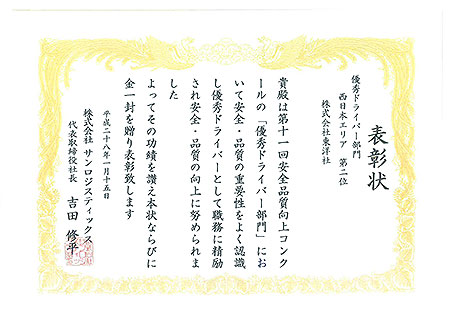 表彰状
優秀ドライバー部門
西日本エリア 第二位
株式会社東洋社
貴殿は第十一回安全品質向上コンク
ールの「優秀ドライバー部門」にお
いて安全・品質の重要性をよく認識
し優秀ドライバーとして職務に精励
され安全・品質の向上に努められま
した
よってその功績を讃え本状ならびに
金一封を贈り表彰致します
平成二十八年一月十五日
株式会社 サンロジスティックス
代表取締役社長 吉田 修平